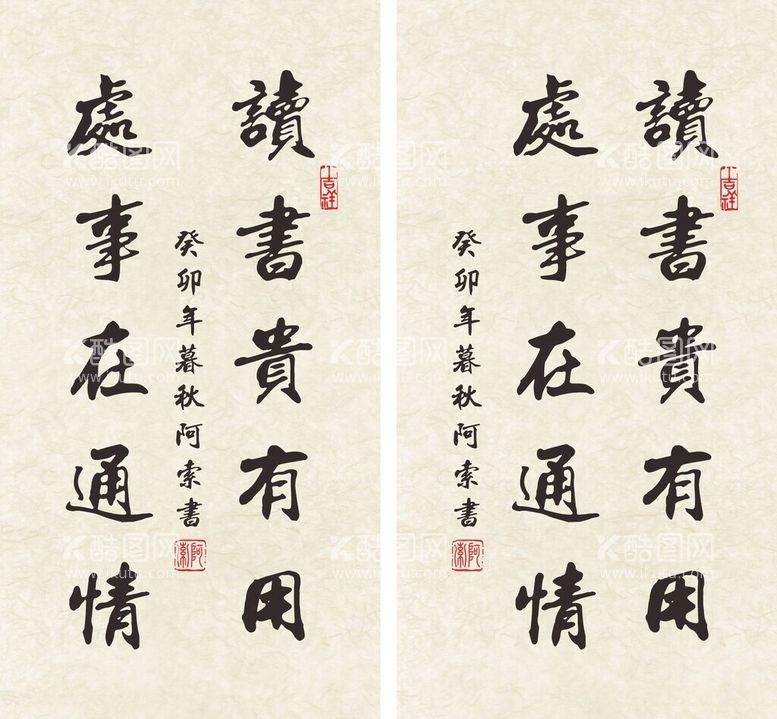 讀書貴有用
處事在通情
癸卯年暮秋阿索書
吉祥
阿索
讀書貴有用
處事在通情
癸卯年暮秋阿索書
吉祥
阿索
酷图网
www.ikutu.com